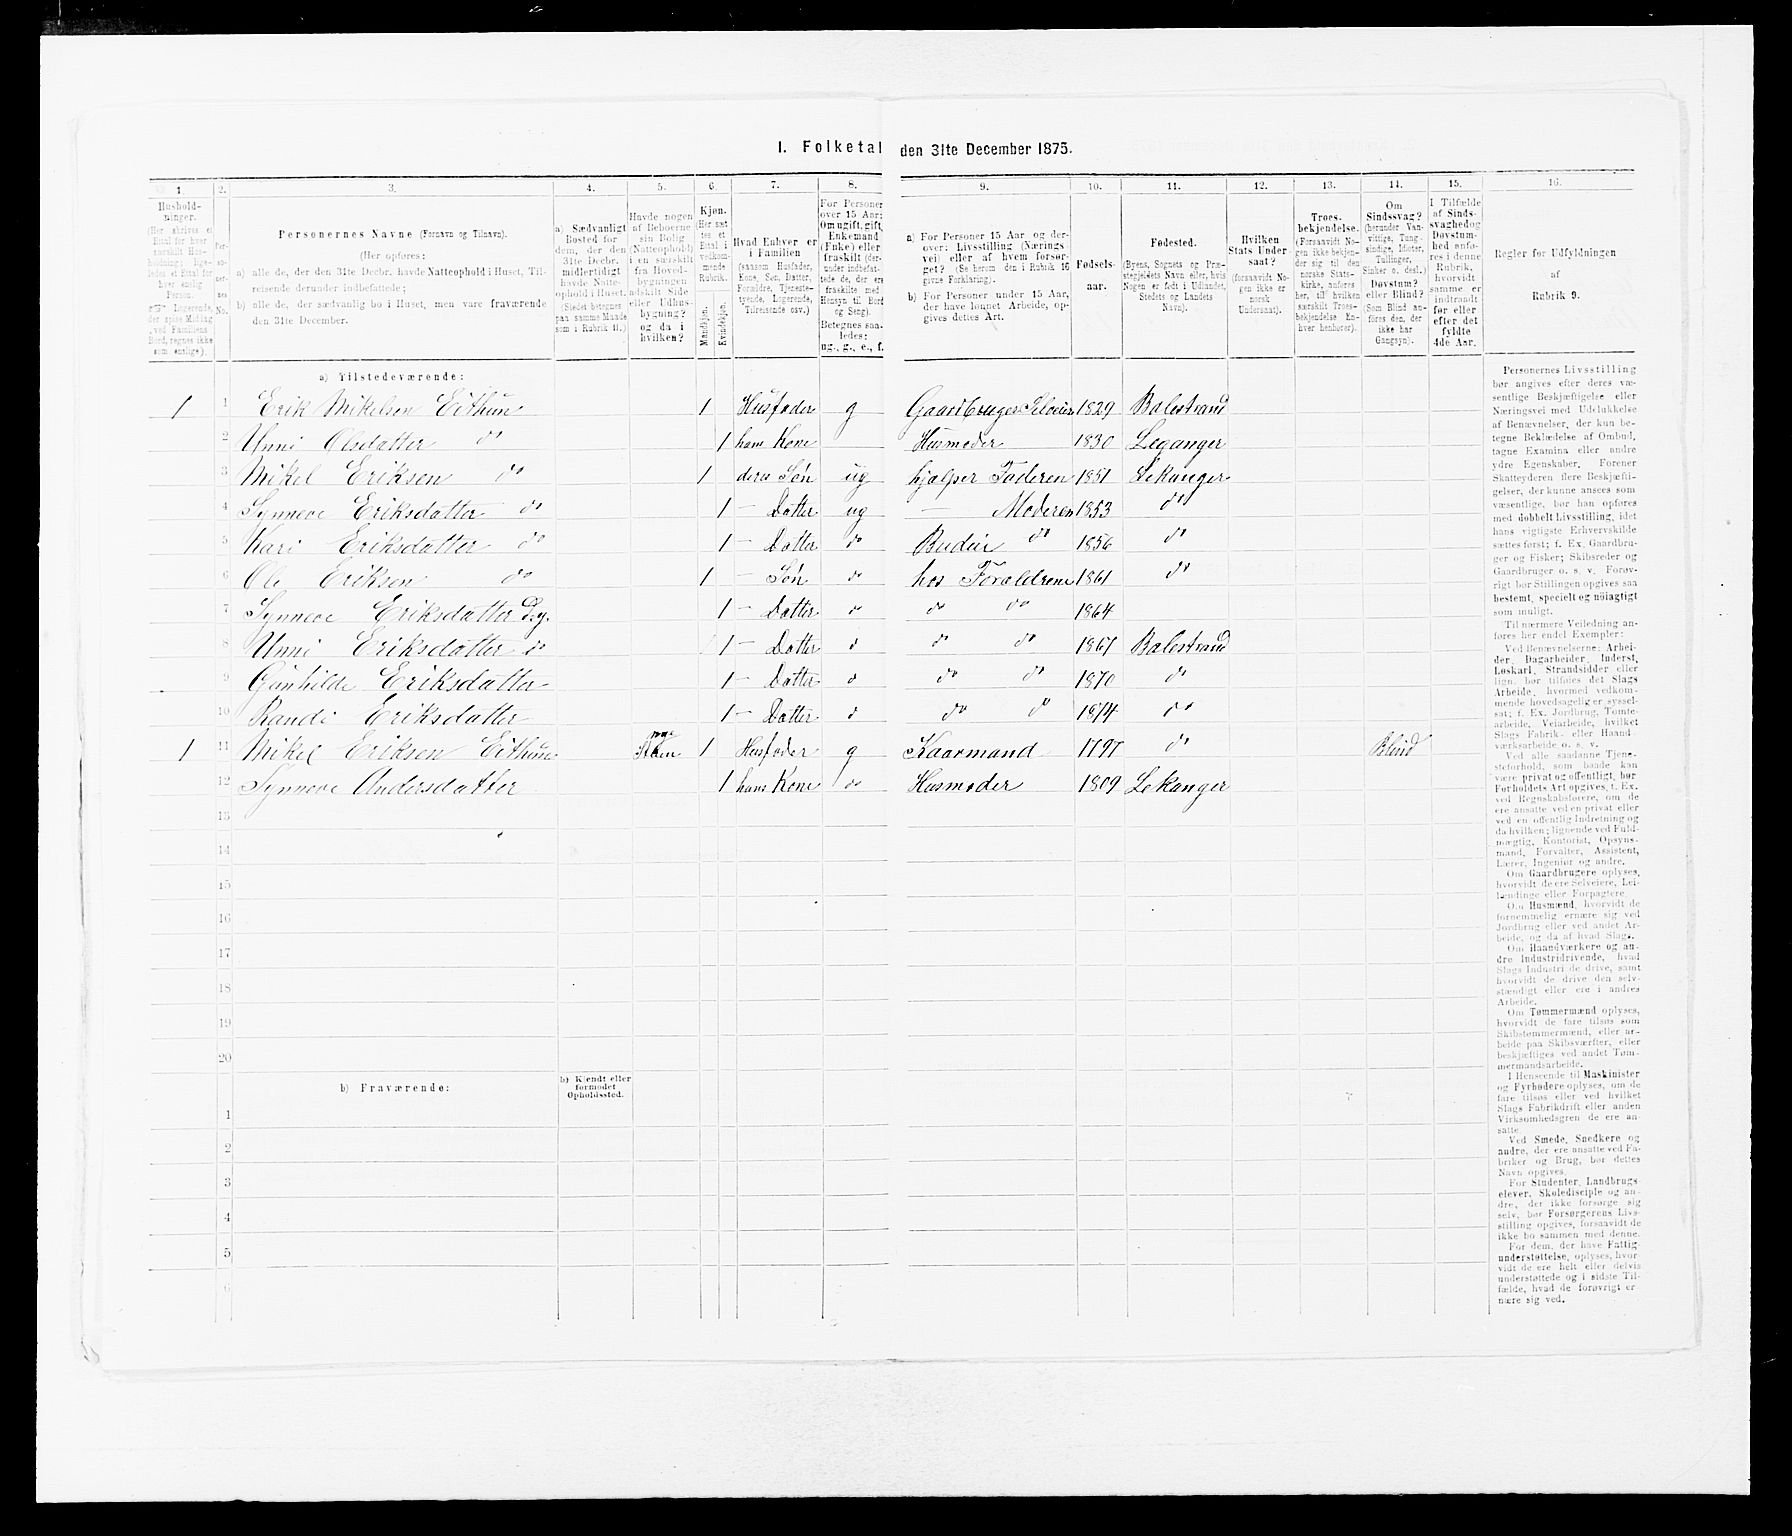 I. Folketal den 31te December 1875.
1. 2. 3. 4. 5. 6. 7. 8. 9. 10. 11. 12. 13. 14. 15. 16.
Personernes Navne (Fornavn og Tilnavn).
(Her opføres:
a) alle de, der den 31te Decbr. havde Natteophold i Huset, Til-
reisende derunder indbefattede;
b) alle de, der sædvanlig bo i Huset, men vare fraværende
den 31te December.
a) Sædvanligt
Bosted for
dem, der den
31te Decbr.
midlertidigt
havde Natte-
ophold i Huset.
(Stedet betegnes
paa samme Maade
som i Rubrik 11.)
Havde nogen
af Beboerne
sin Bolig
(Natteophold)
i en særskilt
fra Hoved-
bygningen
adskilt Side
eller Udhus-
bygning?
og da i
hvilken?
Kjøn.
(Her sæt
tes et
Ettal i
vedkom-
mende
Rubrik.
Mandkjøn.
Kvindekjøn.
Hvad Enhver er
i Familien
(saasom Husfader,
Kone, Søn, Datter,
Forældre, Tjeneste-
tyende, Logerende,
Tilreisende osv.)
For Personer
over 15 Aar;
Om ugift, gift,
Enkemand
(Enke) eller
fraskilt
Betegnes saa-
ledes:
ug., g., e., f.
a) For Personer 15 Aar og der-
over: Livsstilling (Nærings
vei) eller af hvem forsør-
get? (Se herom den i Rubrik 16
givne Forklaring).
b) For Personer under 15 Aar,
der have lønnet Arbeide, op-
gives dettes Art.
Fødsels-
aar.
Fødested.
(Byens, Sognets og Præ-
stegjeldets Navn eller, hvis
Nogen er født i Udlandet,
Stedets og Landets
Navn).
Hvilken
Stats Under
saat?
(forsaavidt No-
gen ikke er
norsk
Undersaat).
Troes.
bekjendelse.
(Forsaavidt No-
gen ikke bekjen-
der sig til den
norske Stats-
kirke, anføres
her, til hvilken
særskilt Troes-
bekjendelse En-
hver henhører).
Om
Sindssvag?
(herunder Van-
vittige, Tung-
sindige, Idioter,
Tullinger,
Sinker o. desl.)
Døvstum?
eller Blind?
(Som Blind an-
føres den, der
ikke har
Gangsyn).
I Tilfælde
af Sinds-
svaghed og
Døvstum-
hed anfø-
res i denne
Rubrik,
hvorvidt
samme er
indtraadt
før eller
efter det
fyldte
4de Aar.
Regler for Udfyldningen
af
Rubrik 9.
a) Tilstedeværende:
1 1 Erik Mikelsen Eithun 1 Husfader g Gaardbruger Seleier 1829 Balestrand
2 Unni Olsdatter do 1 hans Kone Husmoder 1830 Leganger
3 Mikel Eriksen do 1 deres Søn ug hjælper Faderen 1851 Lekanger
4 Synneve Eriksdatter do 1 — Datter ug — Moderen 1853 do
5 Kari Eriksdatter do 1 — Datter do Budeie do 1856 do
6 Ole Eriksen do 1 — Søn do hos Forældrene 1861 do
7 Synneve Eriksdatter d.y. 1 — Datter do do do 1864
8 Unni Eriksdatter do 1 — Datter d do do 1867 Balestrand
9 Gunhilde Eriksdatter 1 — Datter d do do 1870 do
10 Randi Eriksdatter 1 — Datter d do do 1874 do
1 11 Mikel Eriksen Eithun 1 Husfader g Kaarmand 1797 do Blind
12 Synneve Andersdatter 1 hans Kone do Husmoder 1809 Lekanger
13
14
15
16
17
18
19
20
b) Fraværende:
b) Kjendt eller
formodet
Opholdssted.
1
2
3
4
5
6
Personernes Livsstilling
bør angives efter deres væ-
sentlige Beskjæftigelse eller
Næringsvei med Udelukkelse
af Benævnelser, der kun be-
tegne Beklædelse af Ombud,
tagne Examina eller andre
ydre Egenskaber. Forener
Skatteyderen flere Beskjæfti-
gelser, der kunne ansees som
væsentlige, bør han opføres
med dobbelt Livsstilling, idet
hans vigtigste Erhvervskilde
sættes først; f. Ex. Gaardbru-
ger og Fisker; Skibsreder og
Gaardbruger o. s. v. Forøv-
rigt bør Stillingen opgives saa
bestemt, specielt og nöiagtigt
som muligt.
Til nærmere Veiledning an-
føres her endel Exempler:
Ved Benævnelserne: Arbei-
der, Dagarbeider, Inderst,
Løskarl, Strandsidder eller
lign. bør tilføies det Slags
Arbeide, hvormed vedkom-
mende hovedsagelig er syssel-
sat; f. Ex. Jordbrug, Tomte-
arbeide, Veiarbeide, hvilket
Slags Fabrik- eller Haand-
værksarbeide o. s. v.
Ved alle saadanne Tjene-
steforhold, som baade kan
være privat og offentligt, bør
Forholdets Art opgives, f. Ex.
ved Regnskabsførere, om de
ere ansatte ved en privat eller
ved en offentlig Indretning og
da hvilken; lignende ved Fuld-
mægtig, Kontorist, Opsyns-
mand, Forvalter, Assistent,
Lærer, Ingeniør og andre.
Om Gaardbrugere oplyses,
hvorvidt de ere Selveiere, Lei-
lændinge eller Forpagtere.
Om Husmænd, hvorvidt de
fornemmelig ernære sig ved
Jordbrug eller ved andet Ar-
beide, og da af hvad Slags.
Om Haandværkere og an-
dre Industridrivende, hvad
Slags Industri de drive, samt
hvorvidt de drive den selv-
stændigt eller ere i andres
Arbeide.
Om Tømmermænd oplyses,
hvorvidt de fare tilsøs som
Skibstømmermænd, eller ar-
beide paa Skibsværfter, eller
beskjæftiges ved andet Tøm-
mermandsarbeide.
I Henseende til Maskinister
og Fyrbødere oplyses, om de
fare tilsøs eller ved hvilket
Slags Fabrikdrift eller anden
Virksomhedsgren de ere an-
satte.
Ved Smede, Snedkere og
andre, der ere ansatte ved Fa-
briker og Brug, bør dettes
Navn opgives.
For Studenter, Landbrugs-
elever, Skoledisciple og an-
dre, der ikke forsørge sig
selv, bør Forsørgerens Livs-
stilling opgives, forsaavidt de
ikke bo sammen med denne.
For dem, der have Fattig-
understøttelse, oplyses, hvor-
vidt de ere helt eller delvis
understøttede og i sidste Til-
fælde, hvad de forøvrigt er
nære sig ved.